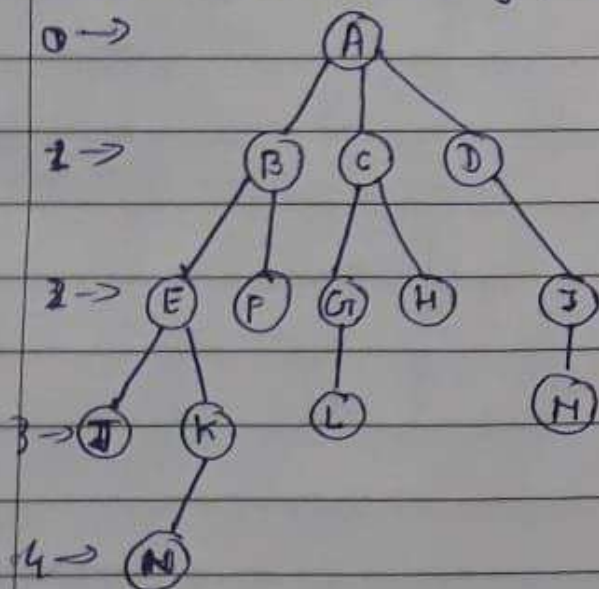 0 → A
1 → B C D
2 → E F G H I
3 → J K L M
4 → N